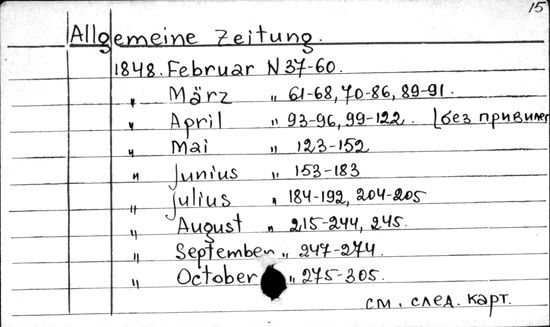 15
Allgemeine Zeitung.
1848. Februar N 37-60.
„ März „ 61-68, 70-86, 89-91.
„ April „ 93-96, 99-122. (без привилег
„ Mai „ 123-152
„ Junius „ 153-183
„ Julius „ 184-192, 204-205
„ August „ 215-244, 245.
„ September „ 247-274.
„ October „ 275-305.
см. след. карт.